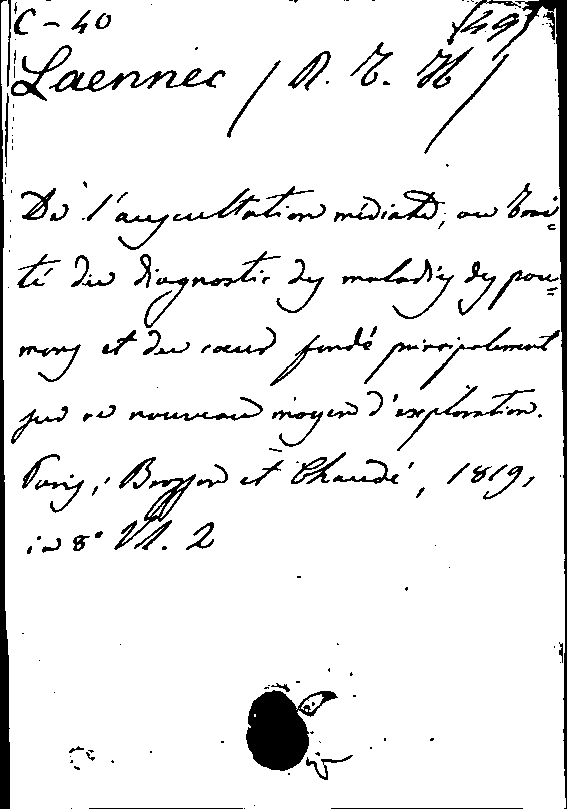 C - 40
Laennec (R. T. H)
De l'auscultation médiate, ou Trai=
té du diagnostic des maladies des pou=
mons et du cœur fondé principalement
sur ce nouveau moyen d'exploration.
Paris, Brosson et Chaudé, 1819,
in 8° Vl. 2